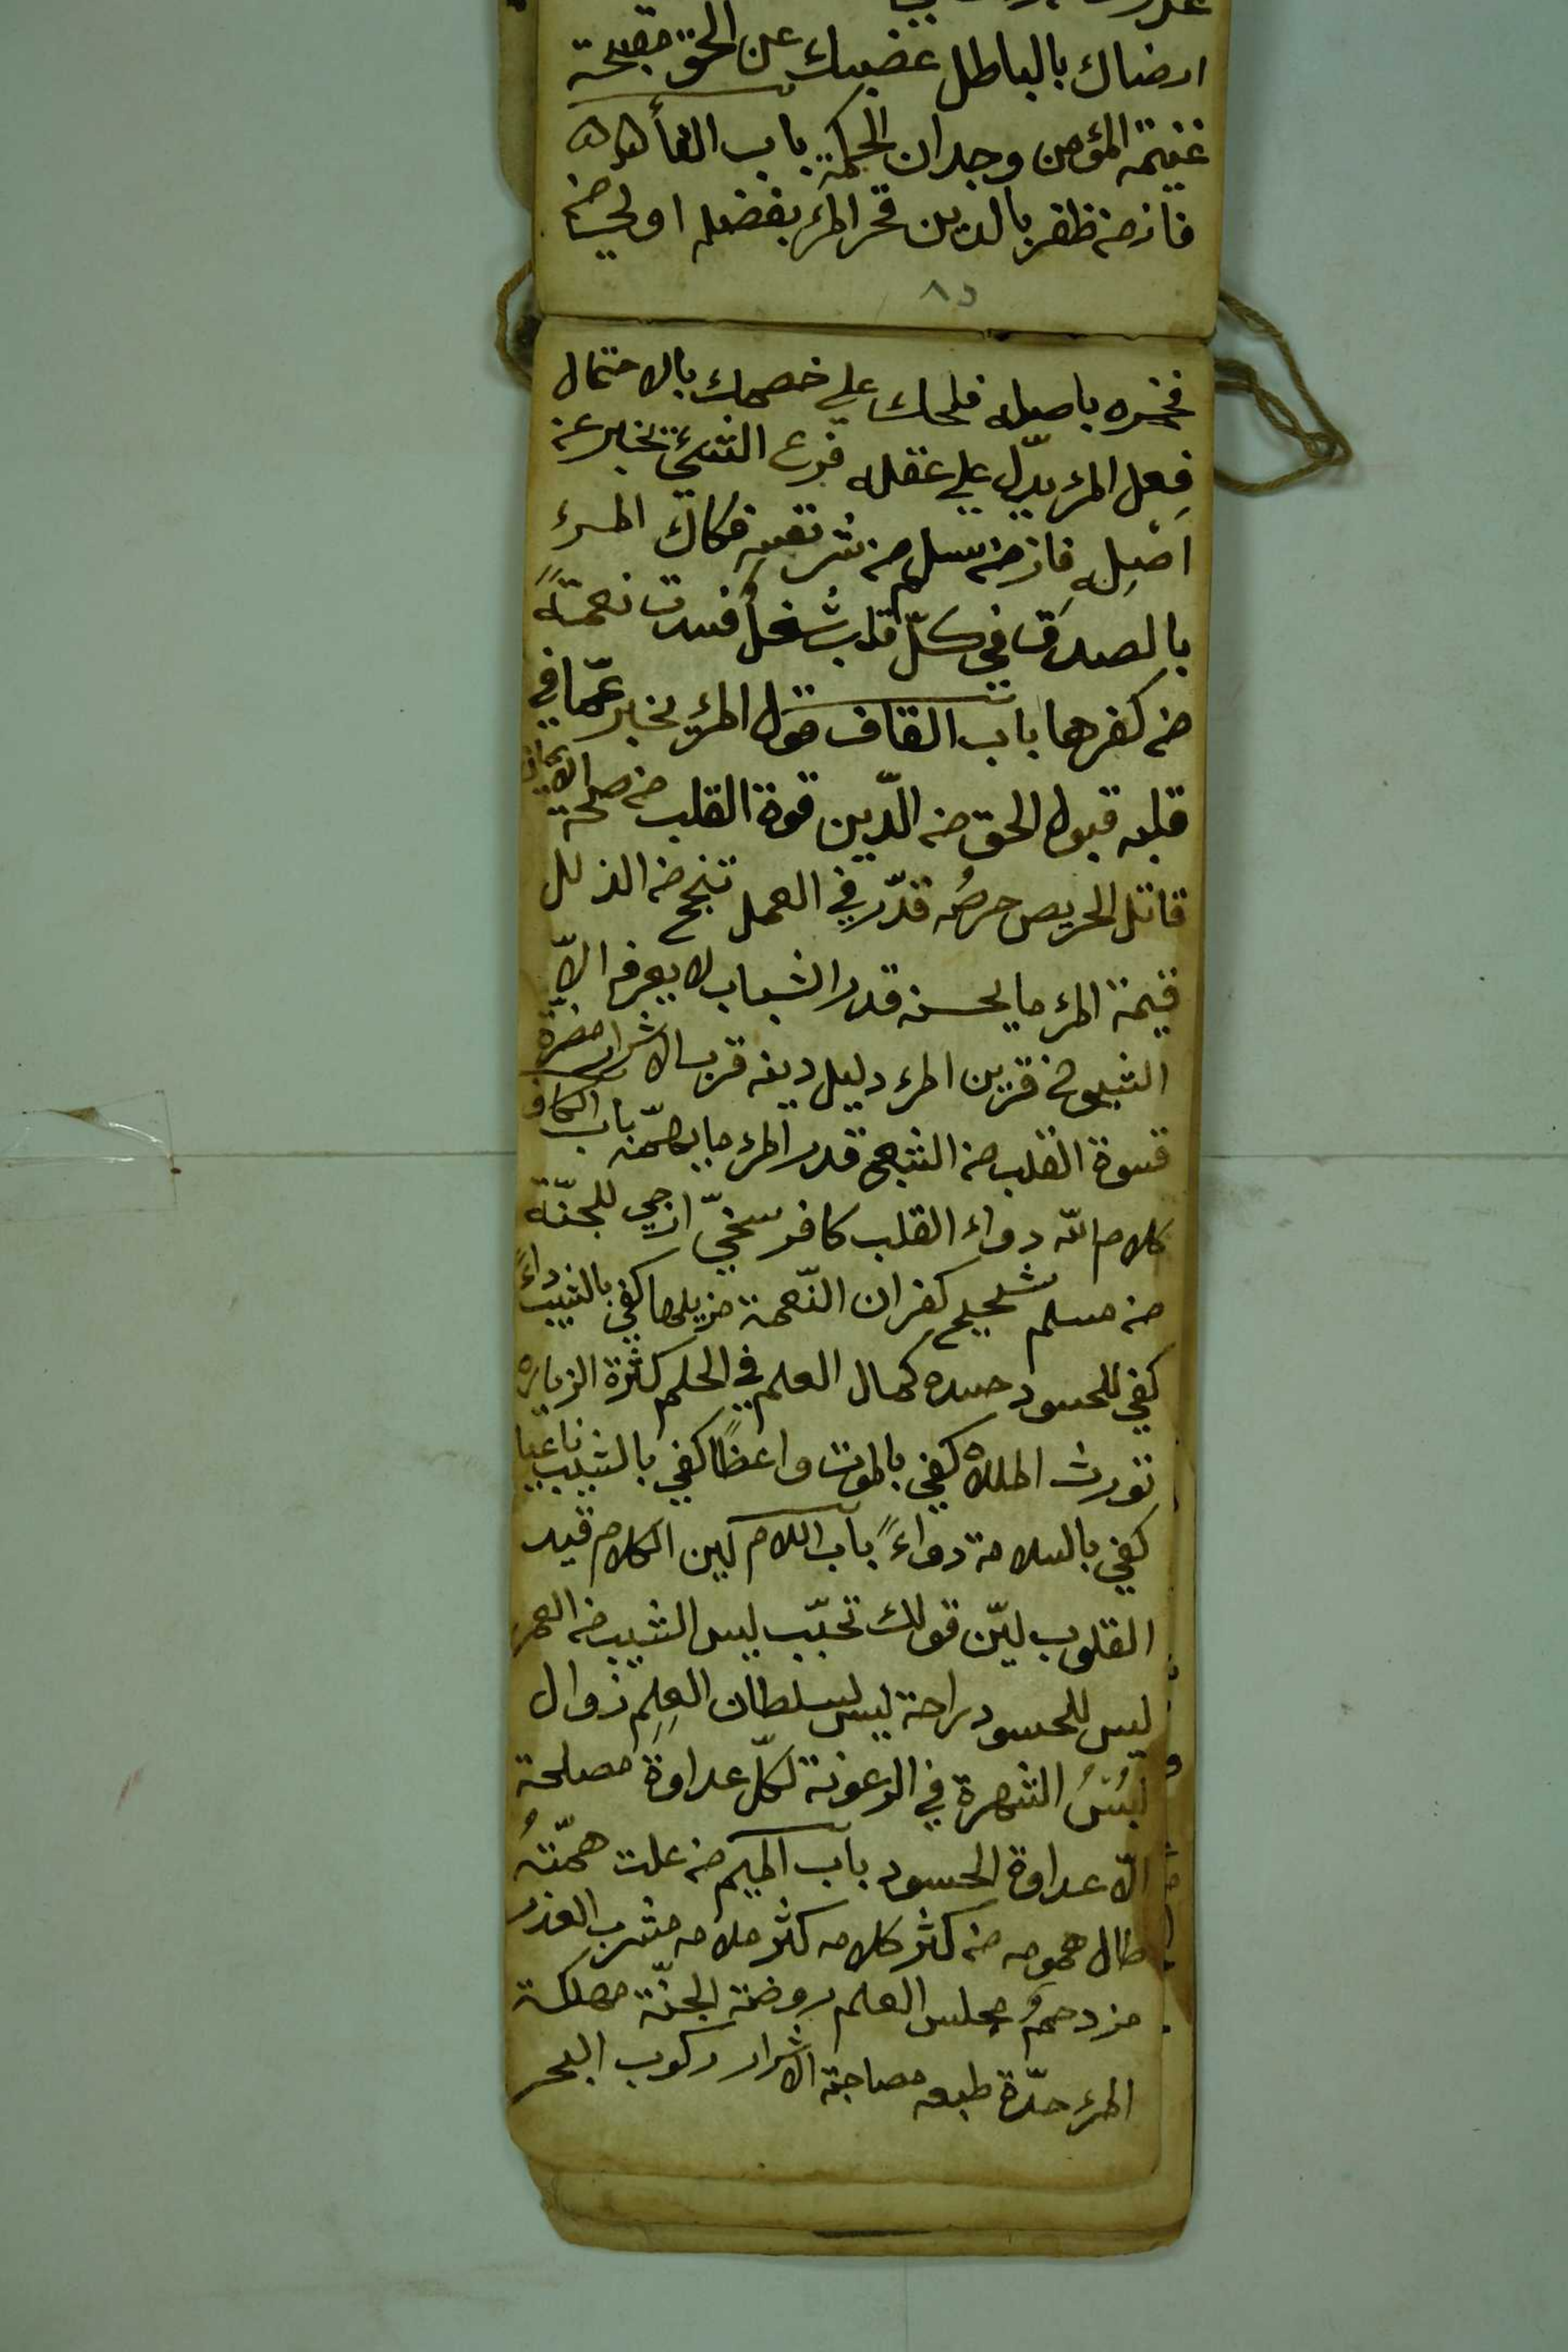 ارضاك بالباطل غضبك عن الحق مقبحة
غنيمة المؤمن وجدان الحكمة باب الفاء
فاز من ظفر بالدين فخر المرء بفضله اولى من
٨٥
فخره باصله فلحك على خصمك بالاحتمال
فِعل المرء يدّل على عقله فرع الشئ يخبر عن
اصْلِهِ فاز من سلم من شر نفسه فكاك المرء
بالصدق في كلّ قلب شُغلٌ فسدت نعمة
من كفرها باب القاف قول المرء يخبر عمّا في
قلبه قبول الحق من الدّين قوة القلب من صحة الايمان
قاتل الحريص حرصُه قدّر في العمل تنج من الزلل
قيمة المرء ما يحسنه قدر الشباب لا يعرفه الّا
الشيوخ قرين المرء دليل دينه قرب الاشرار مضرّة
قسوة القلب من الشبع قدر المرء ما يهمّه باب الكاف
كلام الله دواء القلب كافر سخيّ ارجى للجنّة
من مسلم شحيح كفران النّعمة مزيلها كفى بالشيب داءً
كفى للحسود حسده كمال العلم في الحلم كثرة الزيارة
تورث الملالة كفى بالموت واعظًا كفى بالشيب ناعيا
كفى بالسلامة دواءً باب اللام لين الكلام قيد
القلوب ليّن قولك تحبّب ليس الشيب من العمر
ليس للحسود راحة ليس لسلطان العِلم زوال
لُبْسُ الشهرة في الرعونة لكلّ عداوة مصلحة
الّا عداوة الحسود باب الميم من علت همّتُه
طال همومه من كثر كلامه كثر ملامه مشرب العذب
مزدحمٌ مجلس العلم روضة الجنّة مهلكة
المرء حدّة طبعه مصاحبة الاشرار ركوب البحر